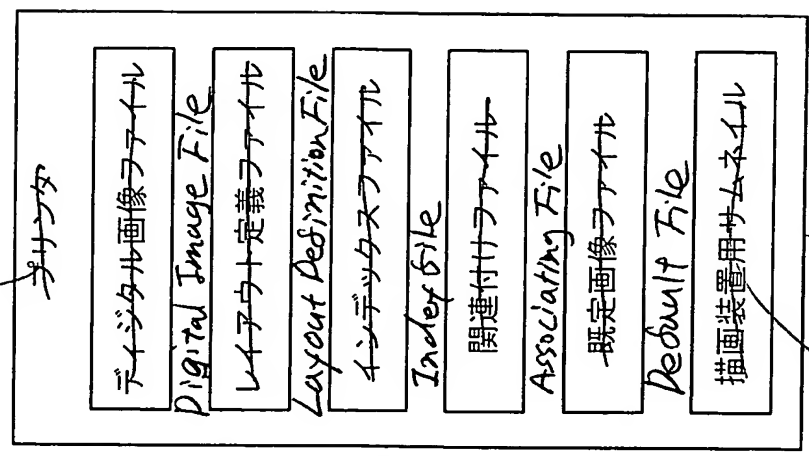 プリンタ
ディジタル画像ファイル
Digital Image File
レイアウト定義ファイル
Layout Definition File
インデックスファイル
Index File
関連付けファイル
Associating File
既定画像ファイル
Default File
描画装置用サムネイル